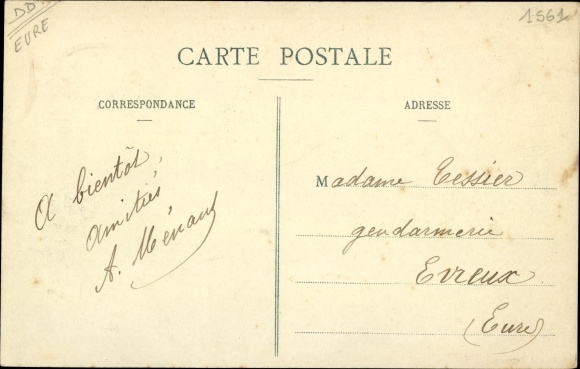 DD.
EURE
1561
CARTE POSTALE
CORRESPONDANCE
ADRESSE
A bientôt,
amitiés,
A. Ménard
Madame Tessier
gendarmerie
Evreux
(Eure)